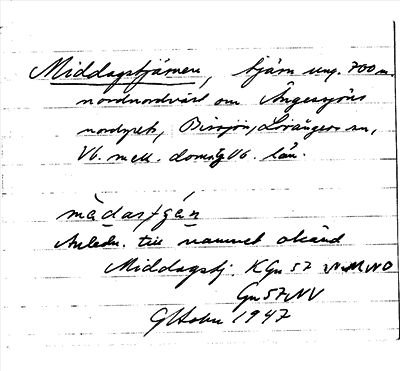 Middagstjärnen, tjärn ung. 700 m
nordnordväst om Ångessjöns
nordspets, Bissjön, Lövångers sn,
Vb. mell. doms. Vb. län.
mädastjän
Anledn. till namnet okänd
Middagstj. KGu 57 NMNO
Gu 57 NV
GHolm 1947